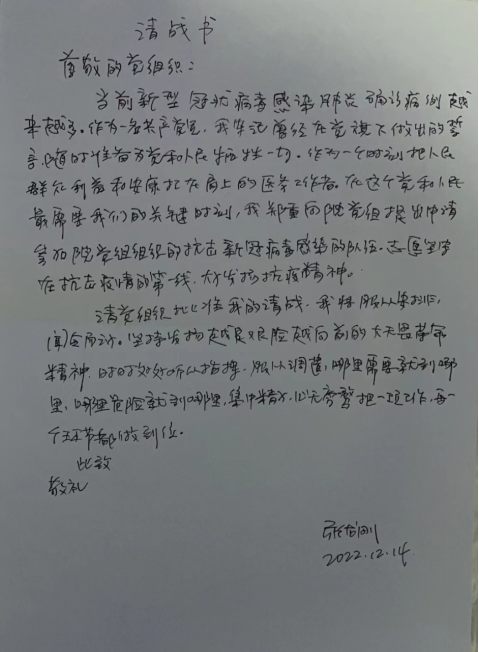 请战书
尊敬的党组织：
当前新型冠状病毒感染肺炎确诊病例越
来越多。作为一名共产党员，我牢记曾经在党旗下做出的誓
言，随时准备为党和人民牺牲一切。作为一个时刻把人民
群众利益和安康扛在肩上的医务工作者，在这个党和人民
最需要我们的关键时刻，我郑重向院党组提出申请
参加院党组组织的抗击新冠病毒感染的队伍，志愿坚守
在抗击疫情的第一线，大力发扬抗疫精神。
请党组织批准我的请战，我将服从安排，
闻令而动。坚持发扬越是艰险越向前的大无畏革命
精神，时时刻刻听从指挥，服从调遣，哪里需要就到哪
里，哪里危险就到哪里，集中精力，心无旁骛把一项工作，每一
个环节都做到位。
此致
敬礼
2022.12.14